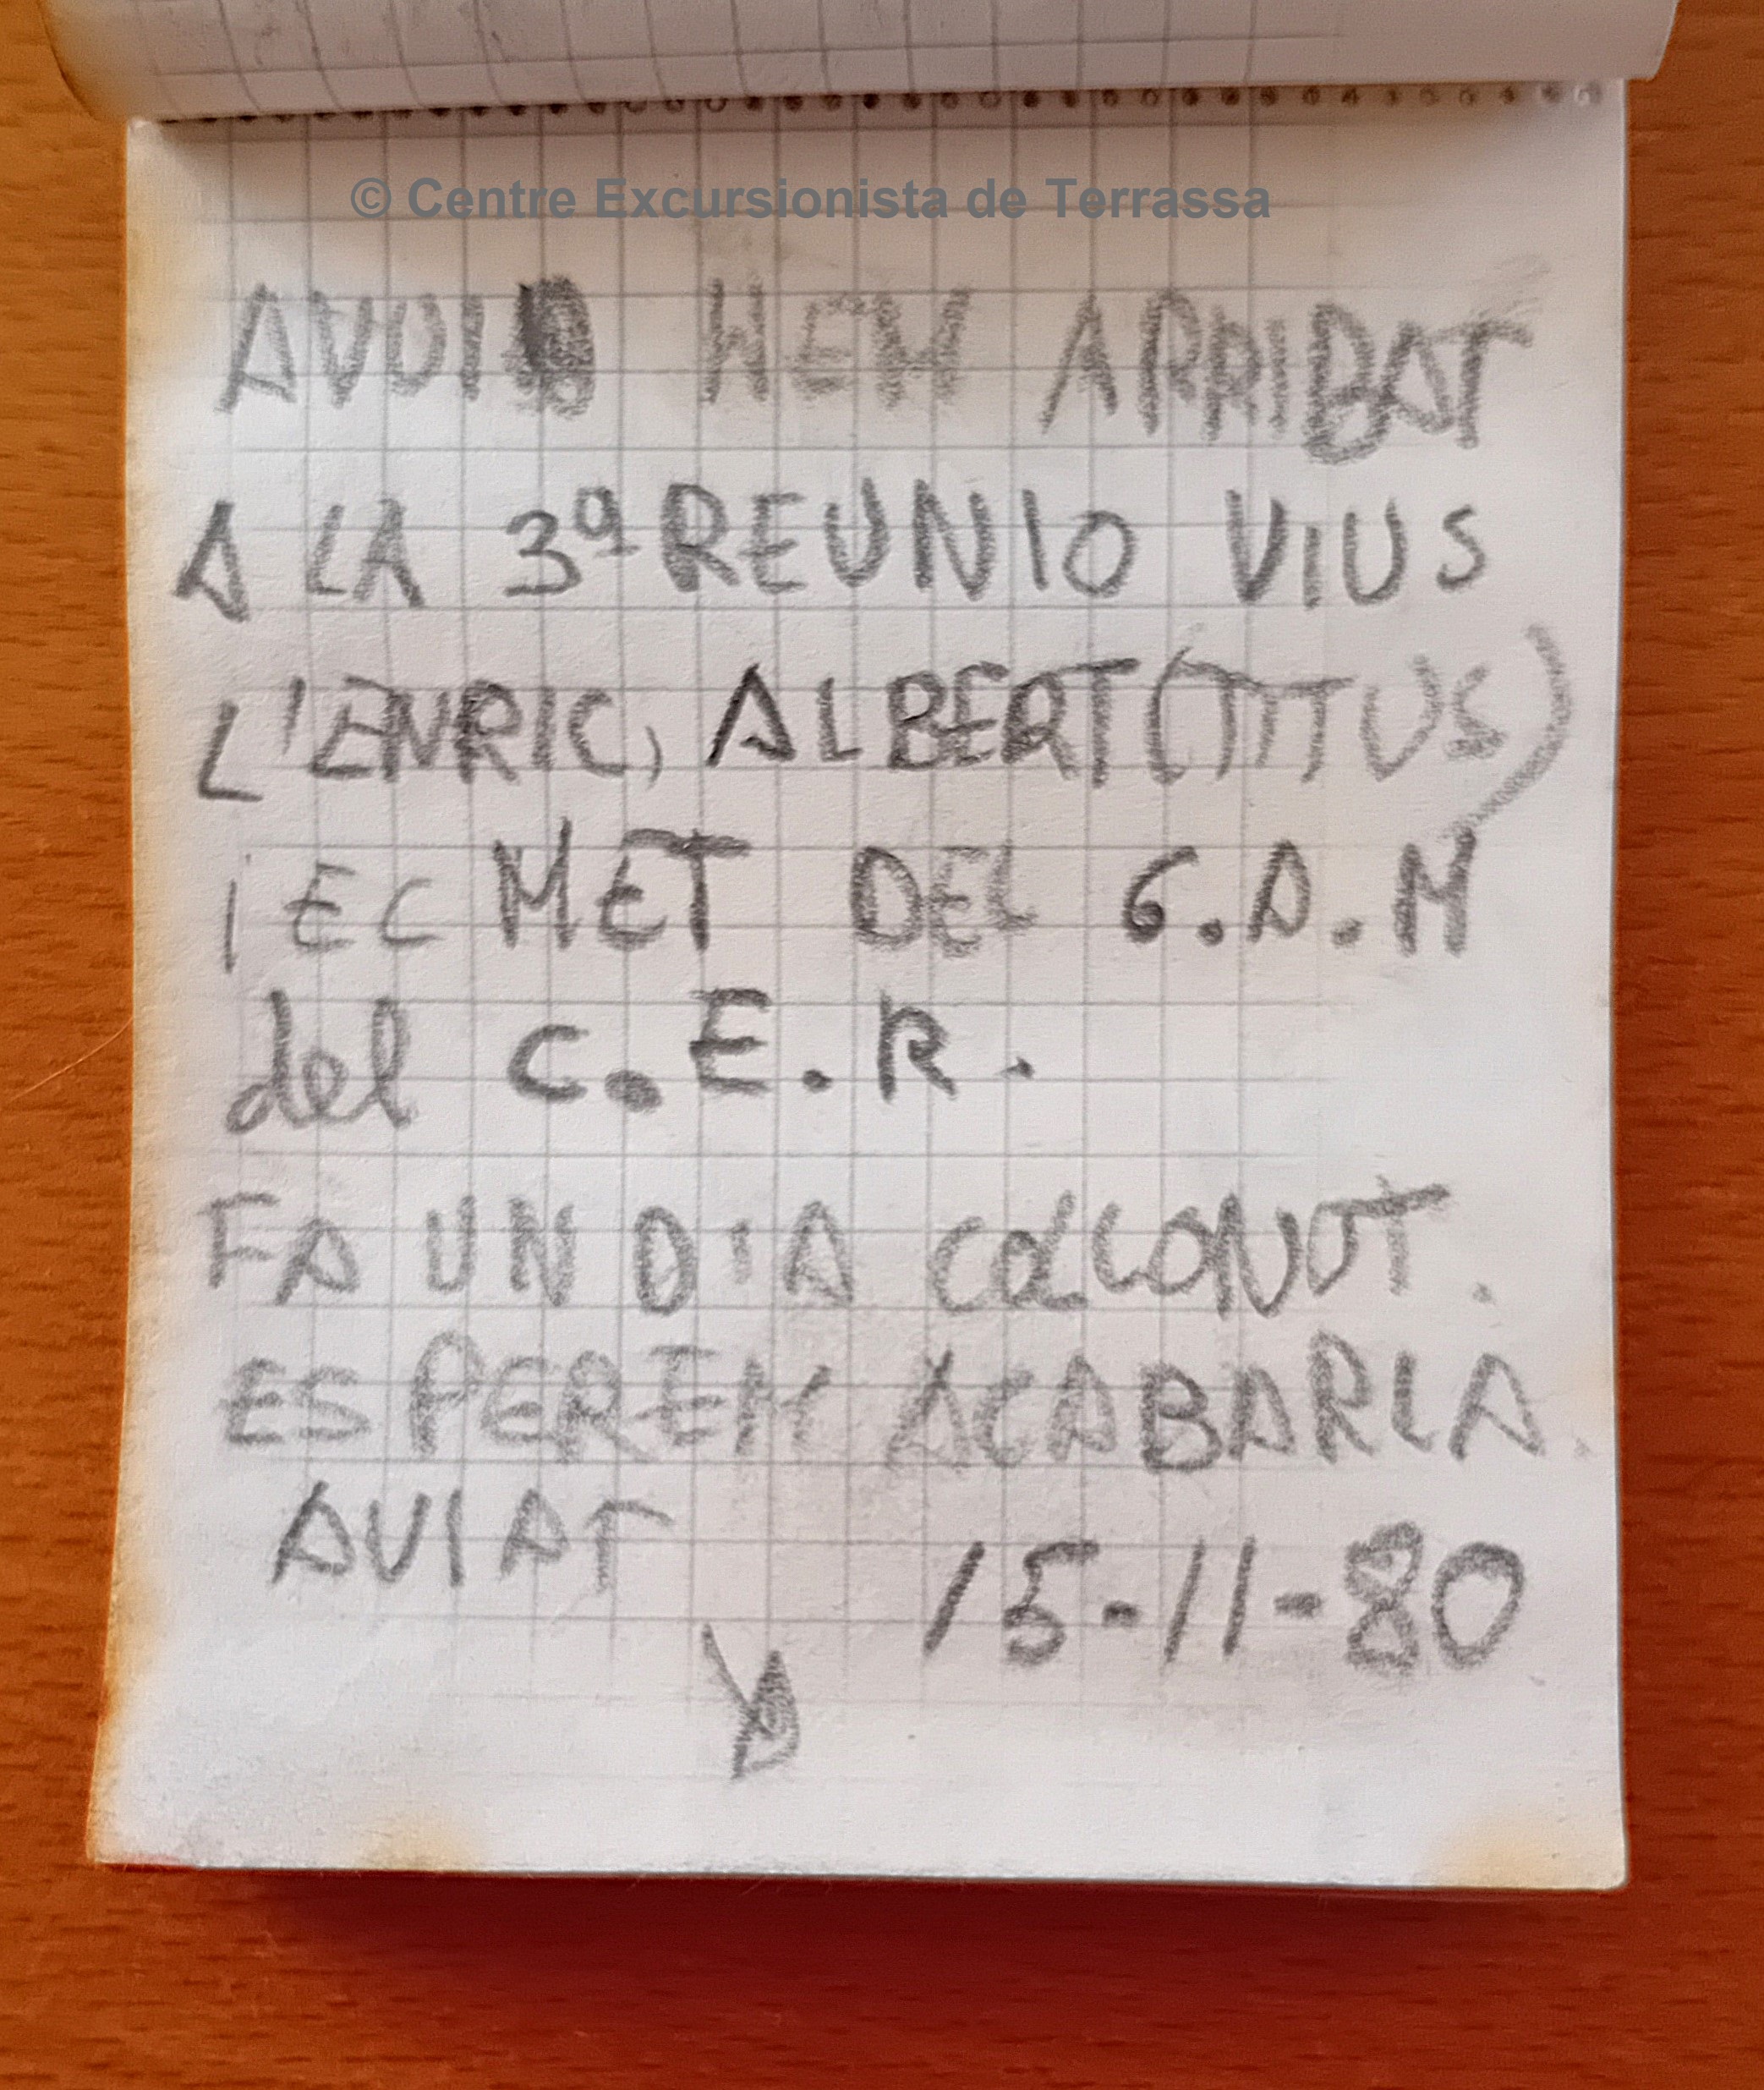 © Centre Excursionista de Terrassa
AVUI HEM ARRIBAT
A LA 3ª REUNIO VIUS
L'ENRIC, ALBERT (TITUS)
i EC MET DEL G.A.M
del C.E.R.
FA UN DIA COLLONUT.
ESPEREM ACABARLA
AVIAT
15-11-80